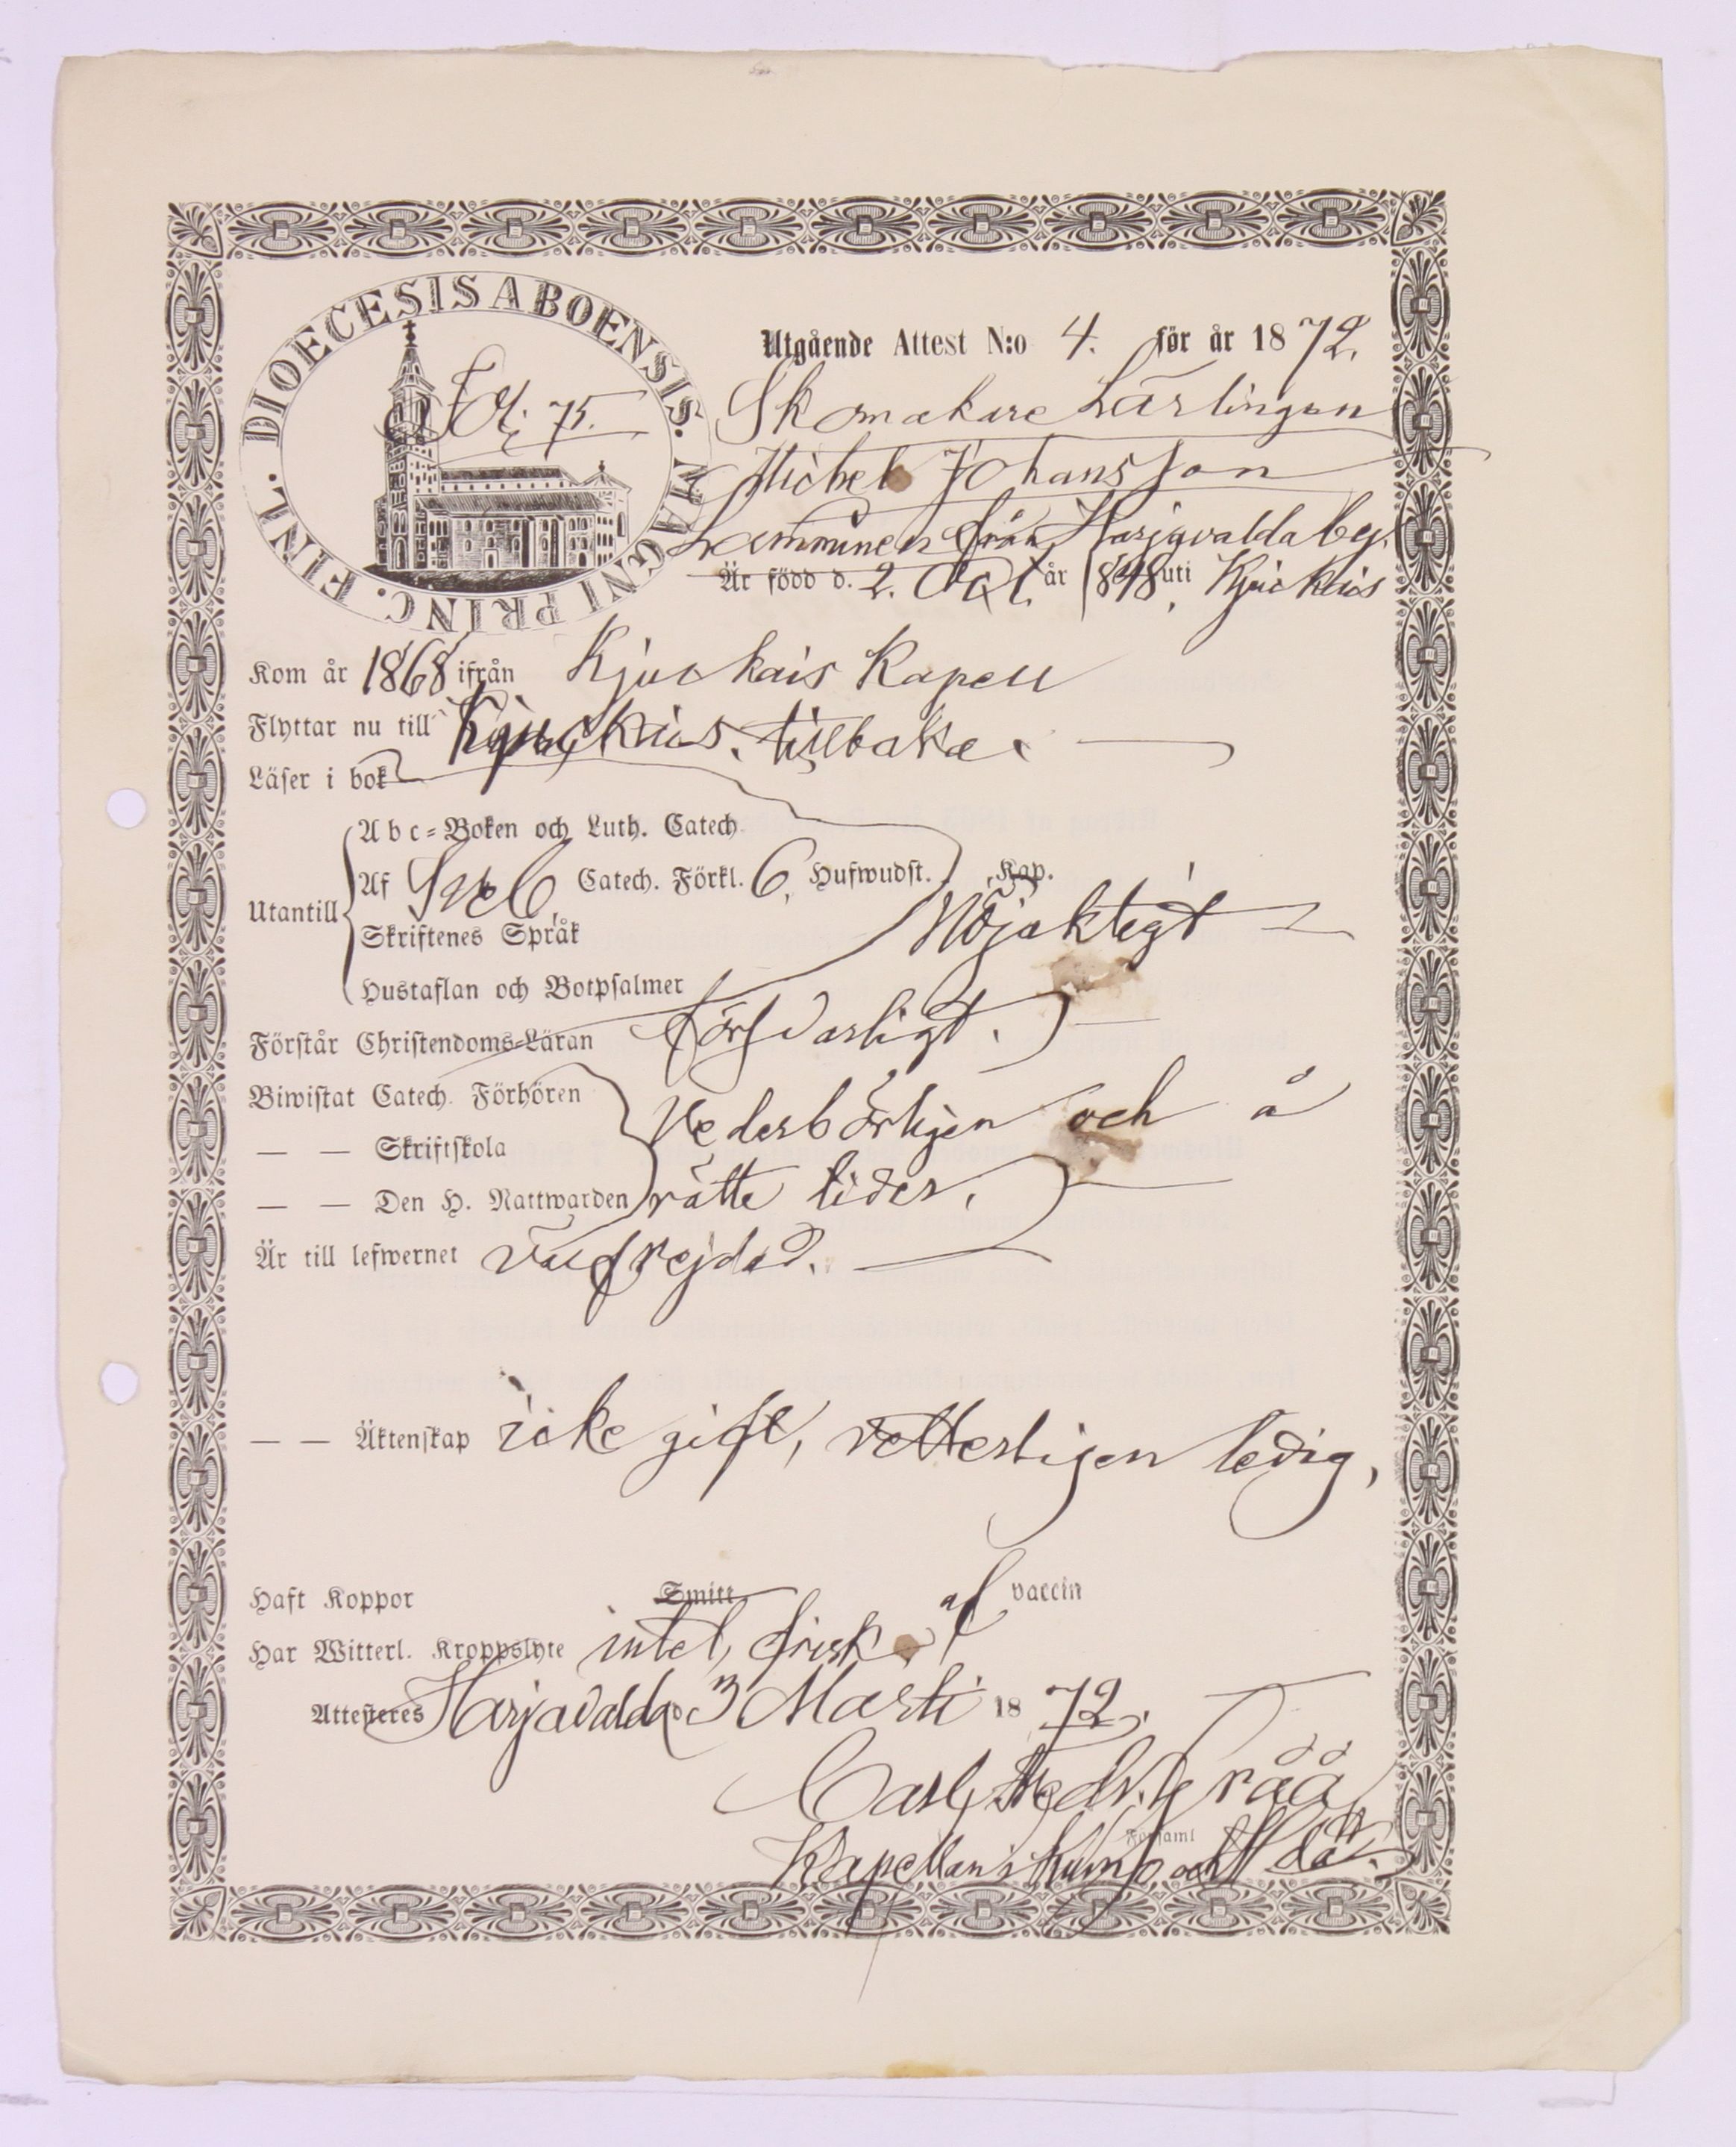 DIOECESIS ABOENSIS. MAGNI PRINC. FINL.
Fol: 75.
Utgående Attest N:o 4. för år 1872.
Skomakare Lärlingen
Michel Johansson
från Harjavalda by.
Är född d. 2. Oct. år 1848, uti Kjuckais
Kom år 1868 ifrån Kjuckais Kapell
Flyttar nu till Kjuckais. tillbaka.
Läser i bok
Abc-Boken och Luth. Catech.
Af Sveb Catech. Förkl. 6, Hufwudst. Kap.
Utantill
Nöjaktigt
Skriftenes Språk
Hustaflan och Botpsalmer
Förstår Christendoms-Läran försvarligt.
Biwistat Catech. Förhören
Vederbörligen och å
— — Skriftskola
— — Den H. Nattwarden rätte tider.
Är till lefwernet välfrejdad.
— — Äktenskap icke gift, vetterligen ledig,
Haft Koppor Smitt af vaccin
Har Witterl. Kroppslyte intet, frisk.
Attesteres Harjavalda d 3 Marti 1872.
Carl Fredr. Gråå
Församl
Kapellan i Kumo och